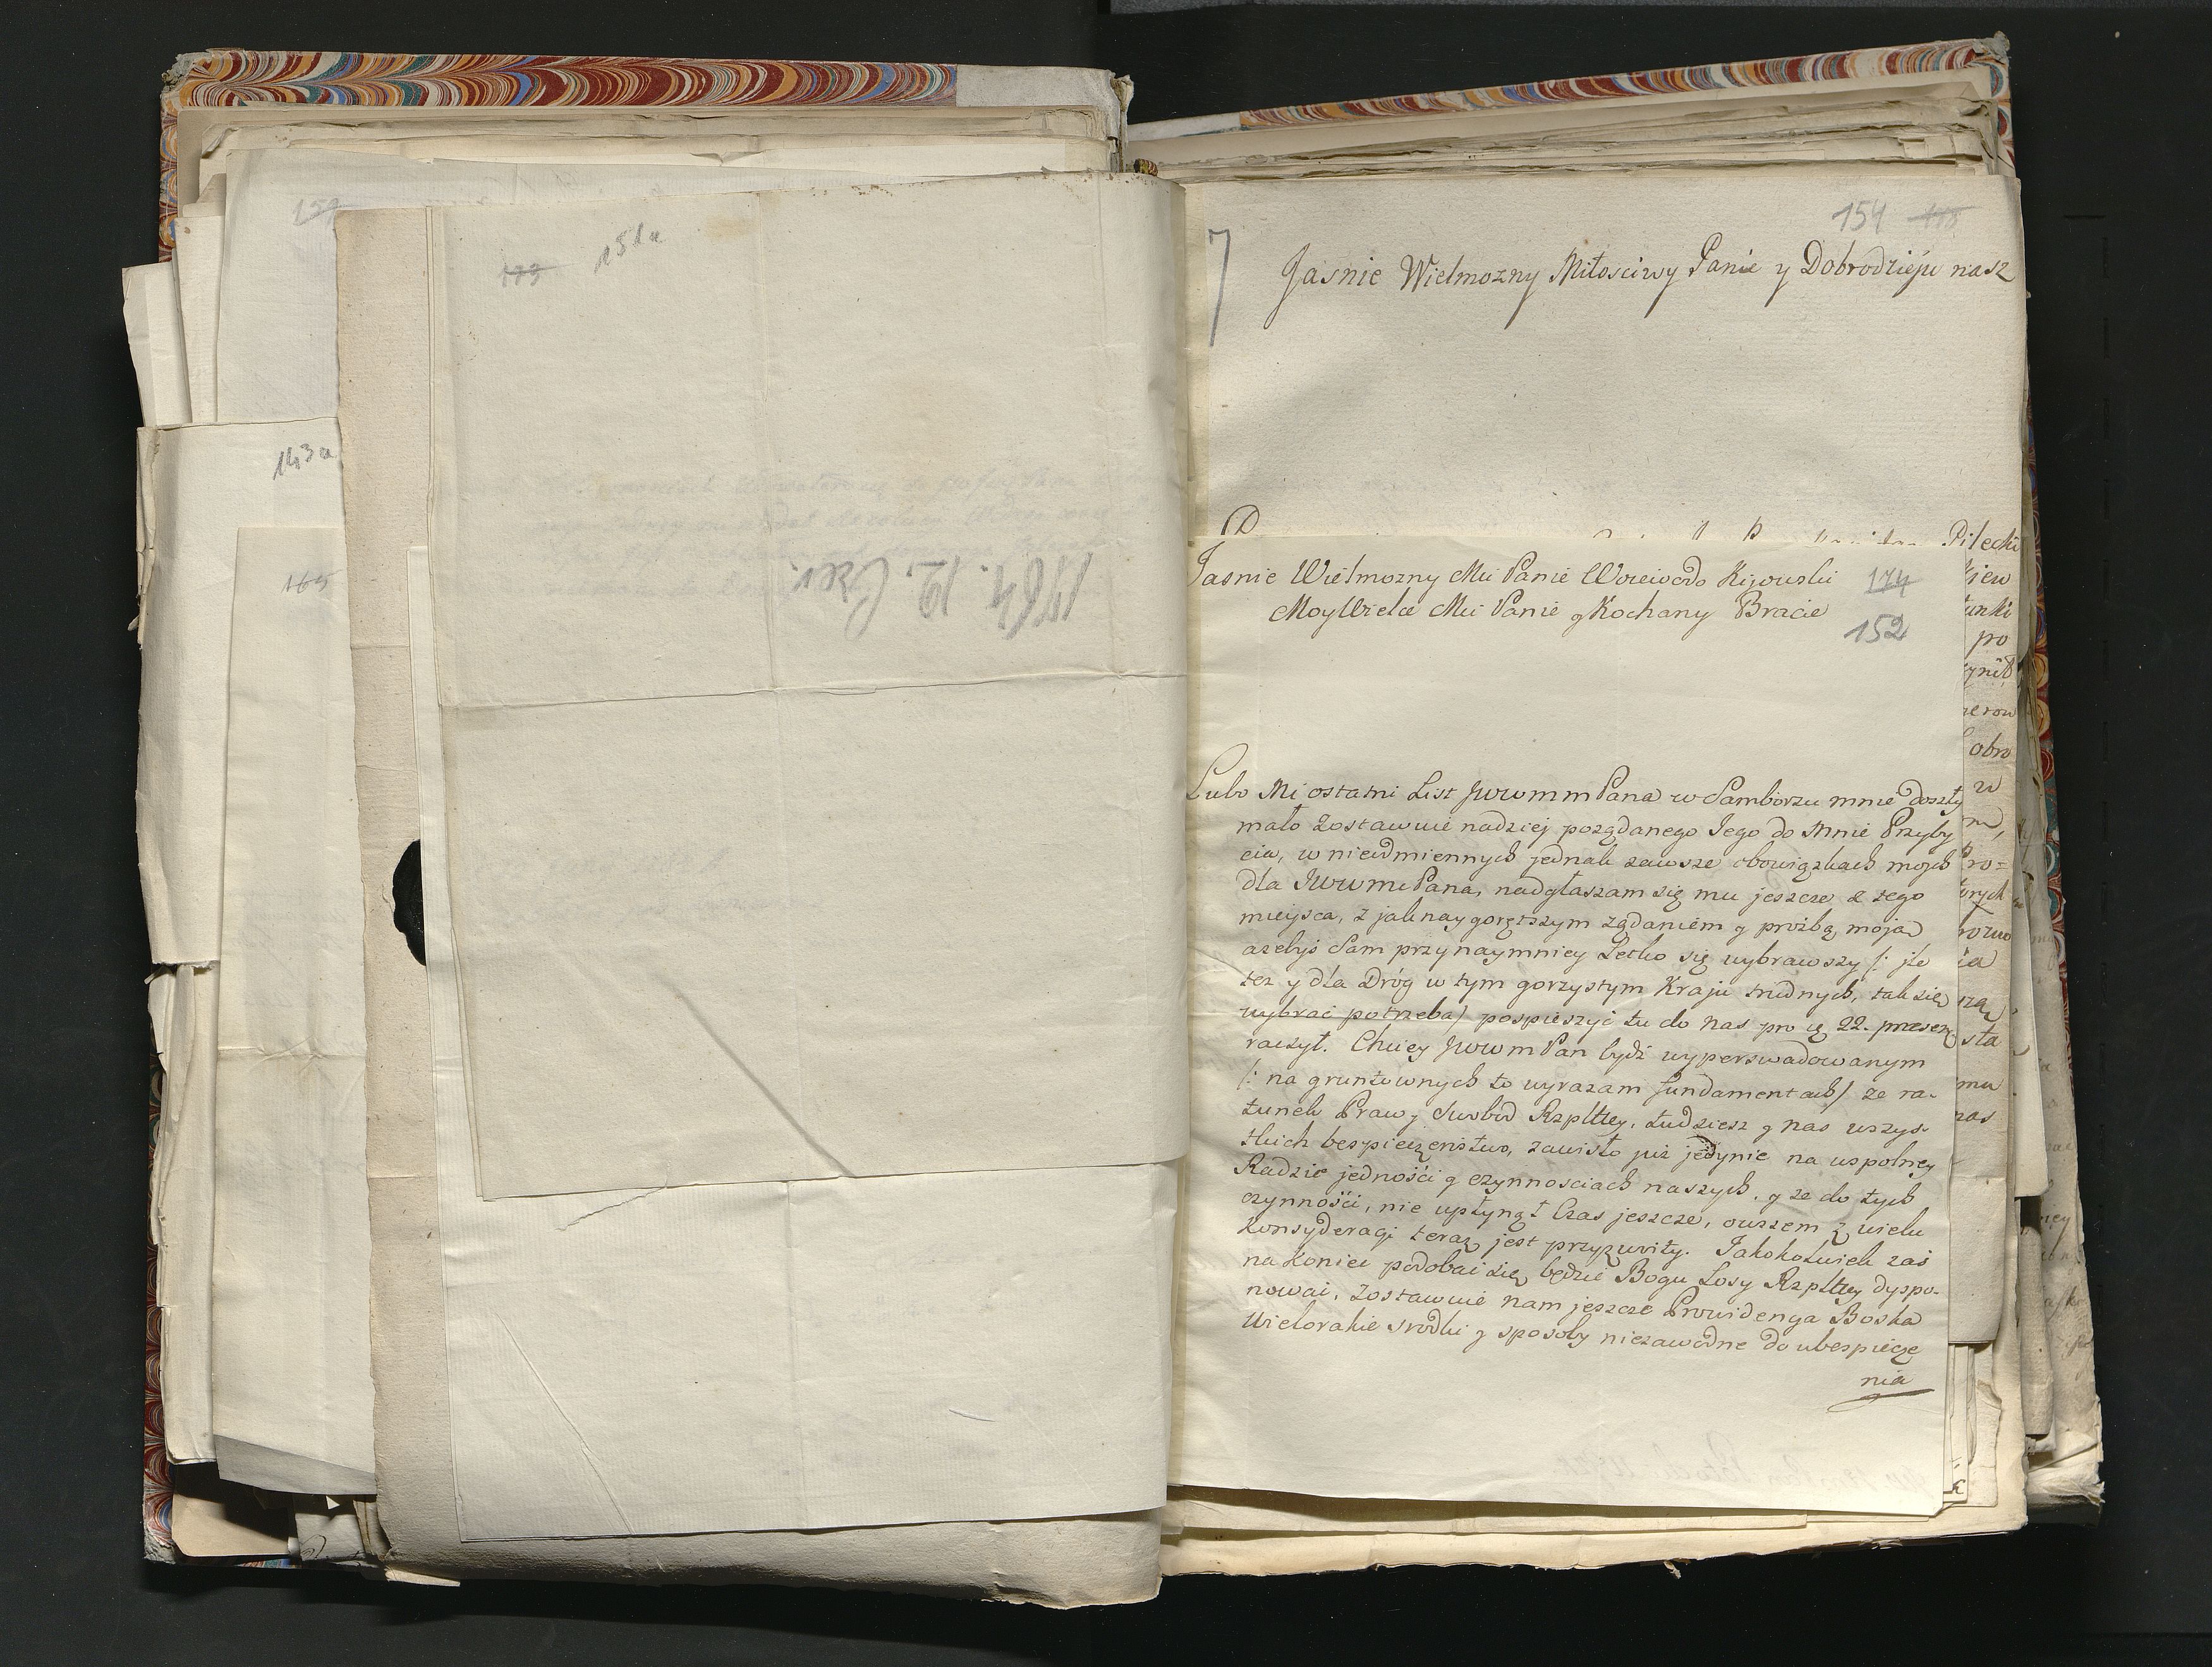 159
173
151a
143a
165
1764. 12. Czer.
154 178
Jasnie Wielmozny Miłosciwy Panie y Dobrodzieju nasz
D
Pilecki
Jasnie Wielmozny Mci Panie Woiewodo Kijowski
174
Moy Wielce Mci Panie y Kochany Bracie
152
Lubo Mi ostatni List JWWmm Pana w Samborzu mnie doszły
mało zostawuie nadziej poządanego Jego do Mnie Przyby
cia, w nieodmiennych jednak zawsze obowiązkach mojch
dla JWWmm Pana, nadgłaszam się mu jeszcze z tego
mieysca, z jak naygorętszym ządaniem y prozbą moją
azebyś Sam przynaymniey Letko się wybrawszy (: jle
tez y dla Dróg w tym gorzystym Kraju trudnych, tak się
wybrać potrzeba) pospieszyć tu do nas pro 22. presen
raczył. Chciey JWWm Pan bydź wyperswadowanym
(: na gruntownych to wyrazam fundamentach) ze ra-
tunek Praw y Swobod Rzpltey, tudziesz y nas wszys-
tkich bespieczeństwo, zawisło już jedynie na wspolney
Radzie jedności y czynnosciach naszych, y ze do tych
czynności, nie upłynął Czas jeszcze, owszem z wielu
konsyderacji teraz jest przyzwoity. Jakokolwiek zaś
na koniec podobać się będzie Bogu Losy Rzpltey dyspo-
nować, zostawuie nam jeszcze Prowidencya Boska
wielorakie srodki y sposoby niezawodne do ubespiecze
nia